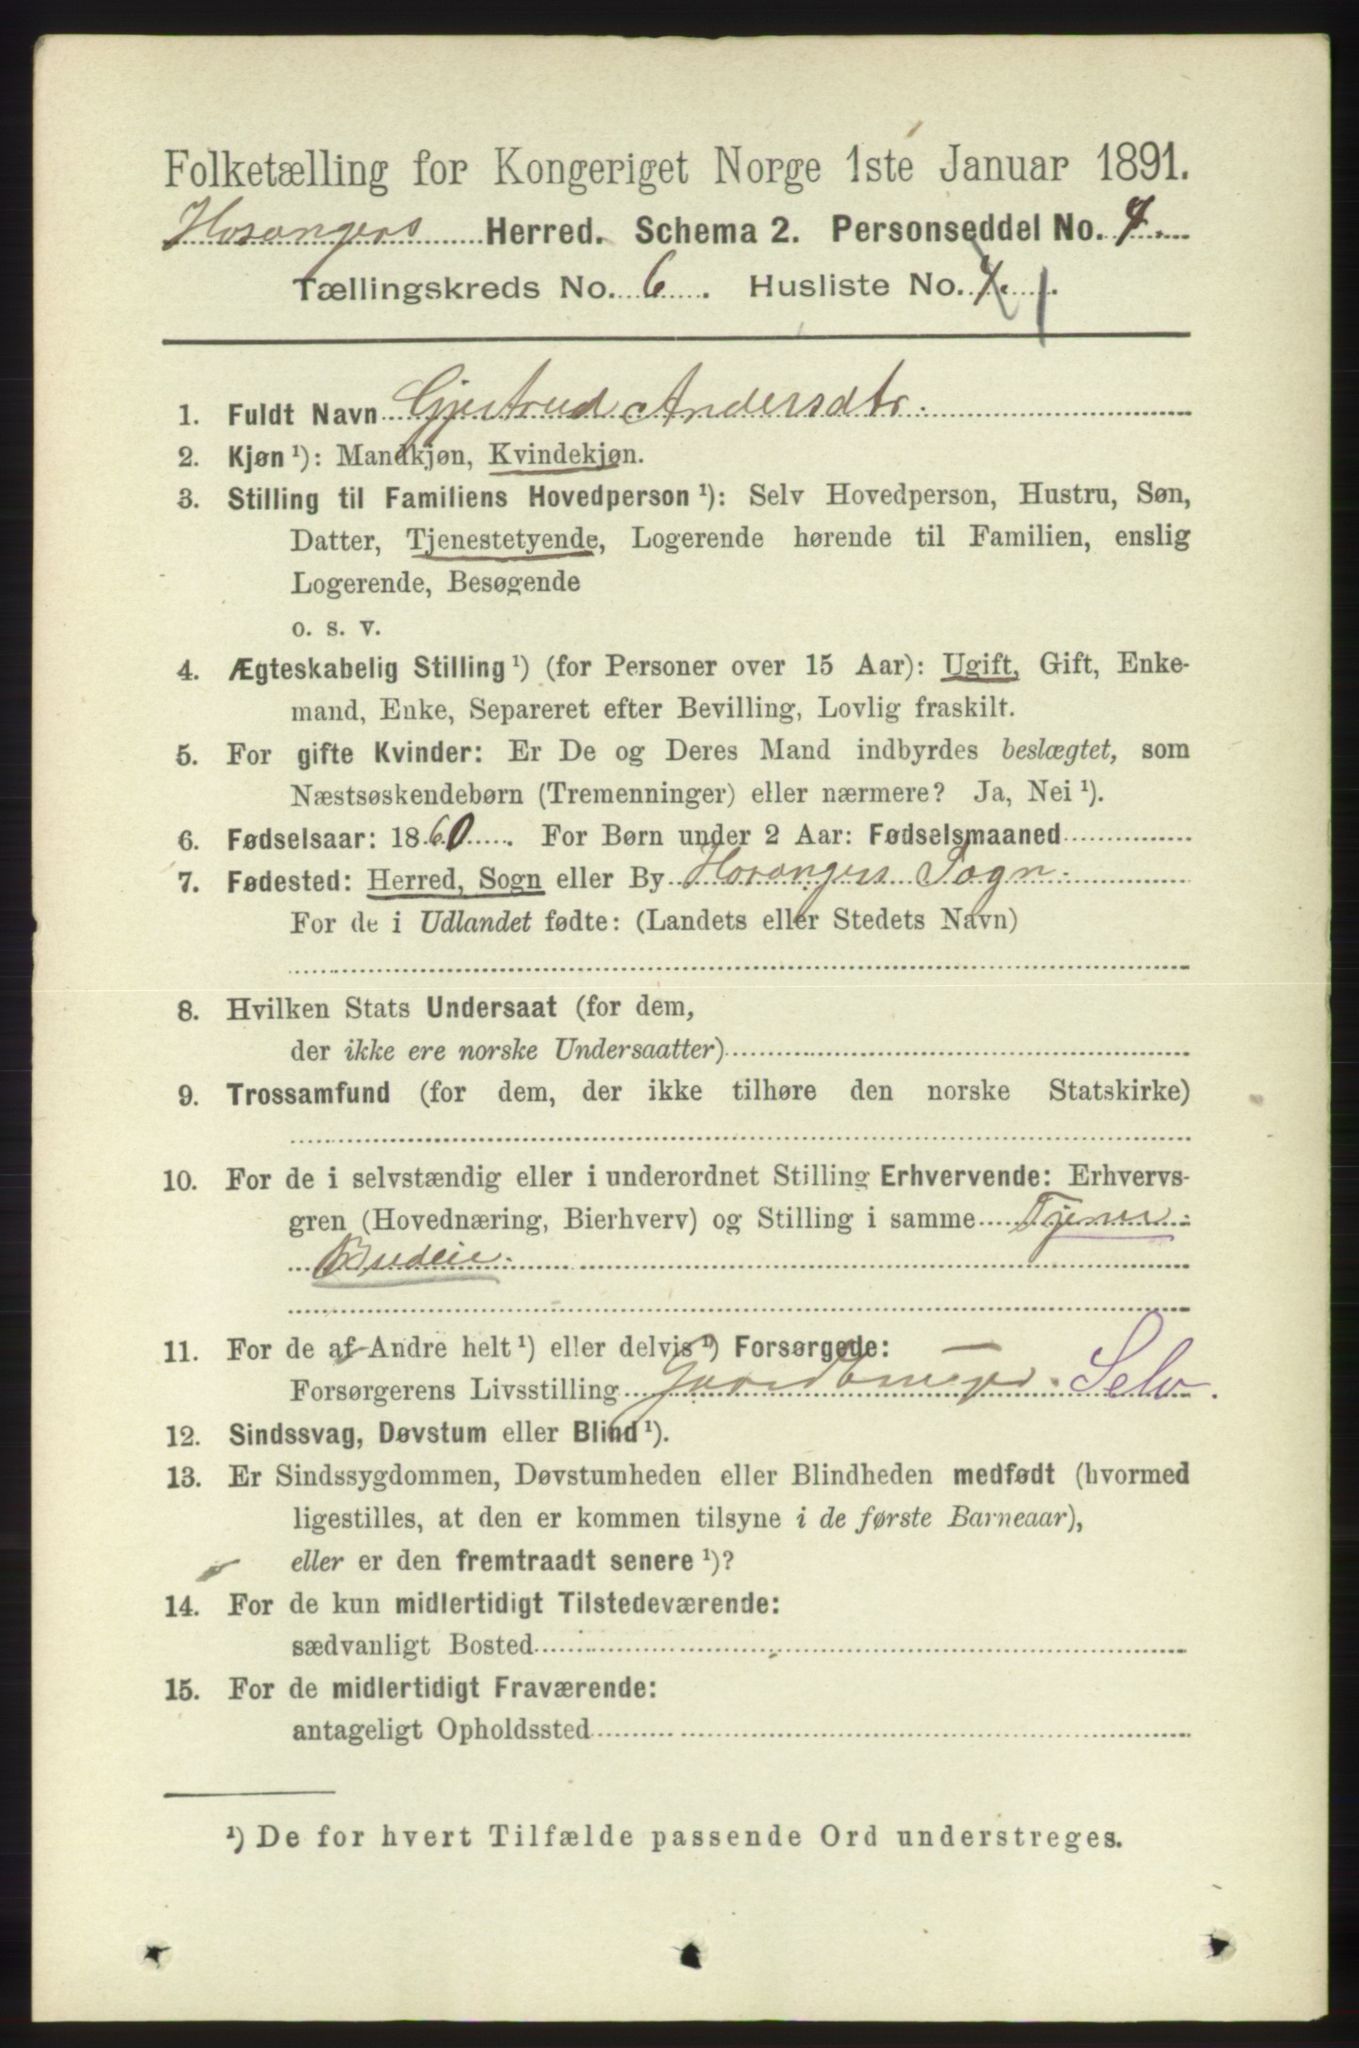 Folketælling for Kongeriget Norge 1ste Januar 1891.
Hosangers Herred. Schema 2. Personseddel No. 7.
Tællingskreds No. 6. Husliste No. 4. 1.
1. Fuldt Navn Gjertrud Andersdtr.
2. Kjøn ¹): Mandkjøn, Kvindekjøn.
3. Stilling til Familiens Hovedperson ¹): Selv Hovedperson, Hustru, Søn,
Datter, Tjenestetyende, Logerende hørende til Familien, enslig
Logerende, Besøgende
o. s. v.
4. Ægteskabelig Stilling ¹) (for Personer over 15 Aar): Ugift, Gift, Enke-
mand, Enke, Separeret efter Bevilling, Lovlig fraskilt.
5. For gifte Kvinder: Er De og Deres Mand indbyrdes beslægtet, som
Næstsøskendebørn (Tremenninger) eller nærmere? Ja, Nei ¹).
6. Fødselsaar: 1860. For Børn under 2 Aar: Fødselsmaaned
7. Fødested: Herred, Sogn eller By Hosangers Sogn.
For de i Udlandet fødte: (Landets eller Stedets Navn)
8. Hvilken Stats Undersaat (for dem,
der ikke ere norske Undersaatter)
9. Trossamfund (for dem, der ikke tilhøre den norske Statskirke)
10. For de i selvstændig eller i underordnet Stilling Erhvervende: Erhvervs-
gren (Hovednæring, Bierhverv) og Stilling i samme Tjener
Budeie.
11. For de af Andre helt ¹) eller delvis ¹) Forsørgede:
Forsørgerens Livsstilling Gaardbruger. Selv.
12. Sindssvag, Døvstum eller Blind ¹).
13. Er Sindssygdommen, Døvstumheden eller Blindheden medfødt (hvormed
ligestilles, at den er kommen tilsyne i de første Barneaar),
eller er den fremtraadt senere ¹)?
14. For de kun midlertidigt Tilstedeværende:
sædvanligt Bosted
15. For de midlertidigt Fraværende:
antageligt Opholdssted
¹) De for hvert Tilfælde passende Ord understreges.